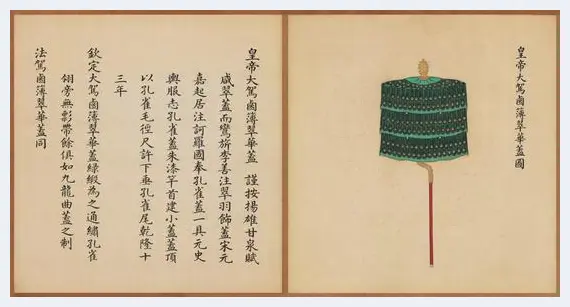 皇帝大駕鹵簿翠華蓋圖
皇帝大駕鹵簿翠華蓋 謹按揚雄甘泉賦
咸翠蓋而鸞旂李善注翠羽飾蓋宋元
嘉起居注訶羅國奉孔雀蓋一具元史
輿服志孔雀蓋朱漆竿首建小蓋蓋頂
以孔雀毛徑尺許下垂孔雀尾乾隆十
三年
欽定大駕鹵簿翠華蓋綠緞為之通繡孔雀
翎旁無彩帶餘俱如九龍曲蓋之制
法駕鹵簿翠華蓋同